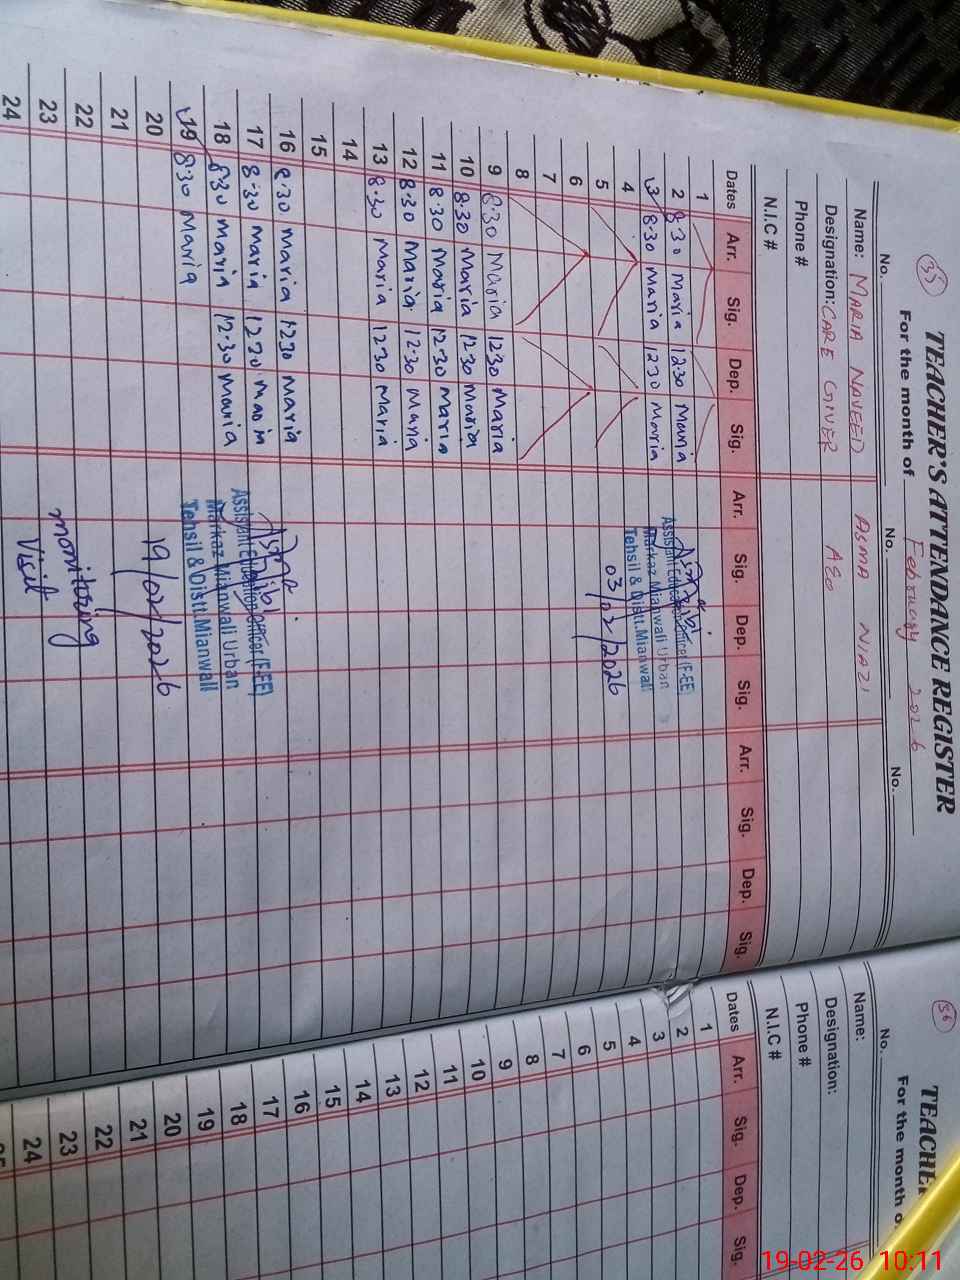 35
TEACHER'S ATTENDANCE REGISTER
For the month of February 2026
No. No. No.
Name: MARIA NAVEED ASMA NIAZI
Designation: CARE GIVER AEO
Phone #
N.I.C #
Dates Arr. Sig. Dep. Sig. Arr. Sig. Dep. Sig. Arr. Sig. Dep. Sig.
1
2 8:30 Maria 12:30 Maria
3 8:30 Maria 12:30 Maria
4
5
6
7
8
9 8:30 Maria 12:30 Maria
10 8:30 Maria 12:30 Maria
11 8:30 Maria 12:30 Maria
12 8:30 Maria 12:30 Maria
13 8:30 Maria 12:30 Maria
14
15
16 8:30 Maria 12:30 Maria
17 8:30 Maria 12:30 Maria
18 8:30 Maria 12:30 Maria
19 8:30 Maria
20
21
22
23
24
Asma Bibi
Assistant Education Officer (F-EE)
Markaz Mianwali Urban
Tehsil & Distt. Mianwali
03/02/2026
Asma Bibi
Assistant Education Officer (F-EE)
Markaz Mianwali Urban
Tehsil & Distt. Mianwali
19/02/2026
monitoring
Visit
36
TEACHE
For the month o
No.
Name:
Designation:
Phone #
N.I.C #
Dates Arr. Sig. Dep. Sig.
1
2
3
4
5
6
7
8
9
10
11
12
13
14
15
16
17
18
19
20
21
22
23
24
19-02-26 10:11